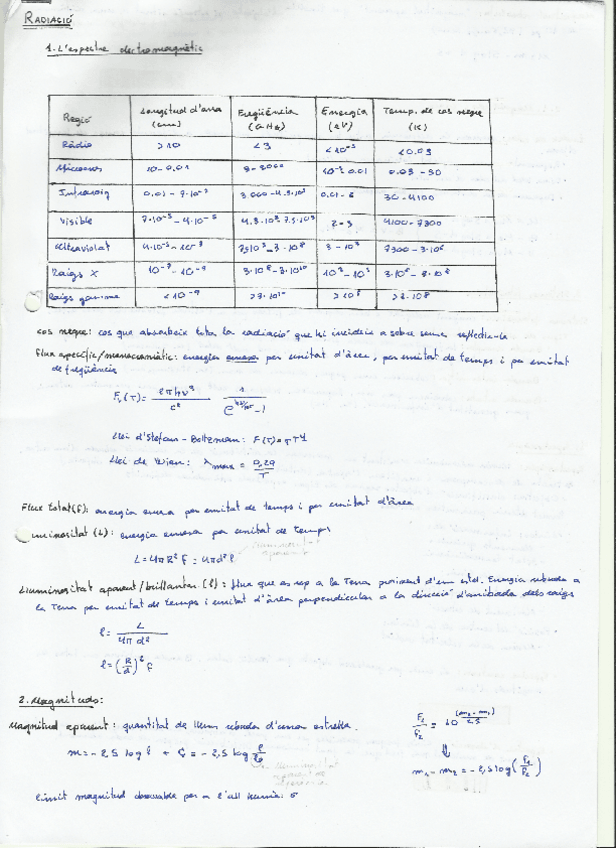 RADIACIÓ
1. L'espectre electromagnètic
Regió Longitud d'ona (cm) Freqüència (GHz) Energia (eV) Temp. de cos negre (K)
Ràdio >10 <3 <10⁻⁵ <0.03
Microones 10 - 0.01 3 - 3000 10⁻⁵ 0.01 0.03 - 30
Infraroig 0.01 - 7·10⁻⁵ 3.000 - 4.3·10⁵ 0.01 - 2 30 - 4100
Visible 7·10⁻⁵ - 4·10⁻⁵ 4.3·10⁵ 7.5·10⁵ 2 - 3 4100 - 7300
Ultraviolat 4·10⁻⁵ - 10⁻⁷ 3 - 10³ 7300 - 3·10⁶
Raigs X 10⁻⁷ - 10⁻⁹ 3·10⁸ - 3·10¹⁰ 10³ - 10⁵ 3·10⁶ - 3·10⁸
Raigs gamma <10⁻⁹ >3·10¹⁰ >10⁵ >3·10⁸
Cos negre: cos que absorbeix tota la radiació que hi incideix a sobre sense reflectir-la
Flux específic/monocromàtic: energia emesa per unitat d'àrea, per unitat de temps i per unitat
de freqüència
Fᵥ(T) = 2πhν³ / c² · 1 / (e^(hν/kT) - 1)
Llei d'Stefan-Boltzman: F(T) = σT⁴
Llei de Wien: λmax = 0,29 / T
Flux total (F): energia emesa per unitat de temps i per unitat d'àrea
uminositat (L): energia emesa per unitat de temps
L = 4πR² F = 4πd² ℓ
Lluminositat aparent/brillantor (ℓ): flux que es rep a la Terra provinent d'un estel. Energia rebuda a
la Terra per unitat de temps i unitat d'àrea perpendicular a la direcció d'arribada dels raigs
ℓ = L / 4πd²
ℓ = (R/d)² F
2. Magnituds:
Magnitud aparent: quantitat de llum rebuda d'una estrella.
m = -2,5 log ℓ + C = -2,5 log ℓ/ℓ₀
F₁/F₂ = 10^((m₂ - m₁)/2,5)
⇓
m₁ - m₂ = -2,5 log (F₁/F₂)
Límit magnitud observable per a l'ull humà: 6